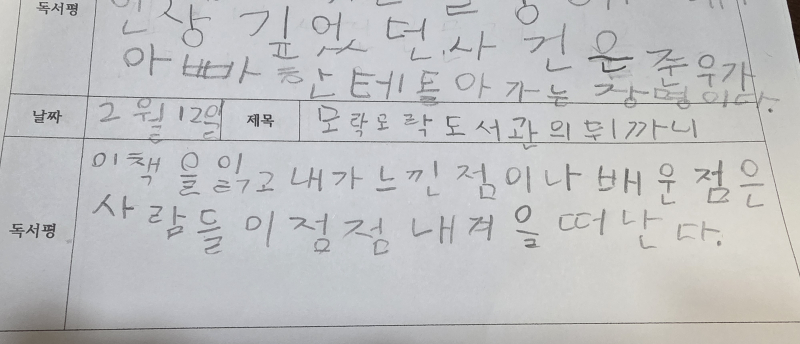 독서평
인상 깊었던 사건은 준우가
아빠한테 돌아가는 장면이다.
날짜 2월 12일 제목 모락모락 도서관의 뒤까니
독서평
이 책을 읽고 내가 느낀점이나 배운 점은
사람들이 점점 내겨을 떠난다.